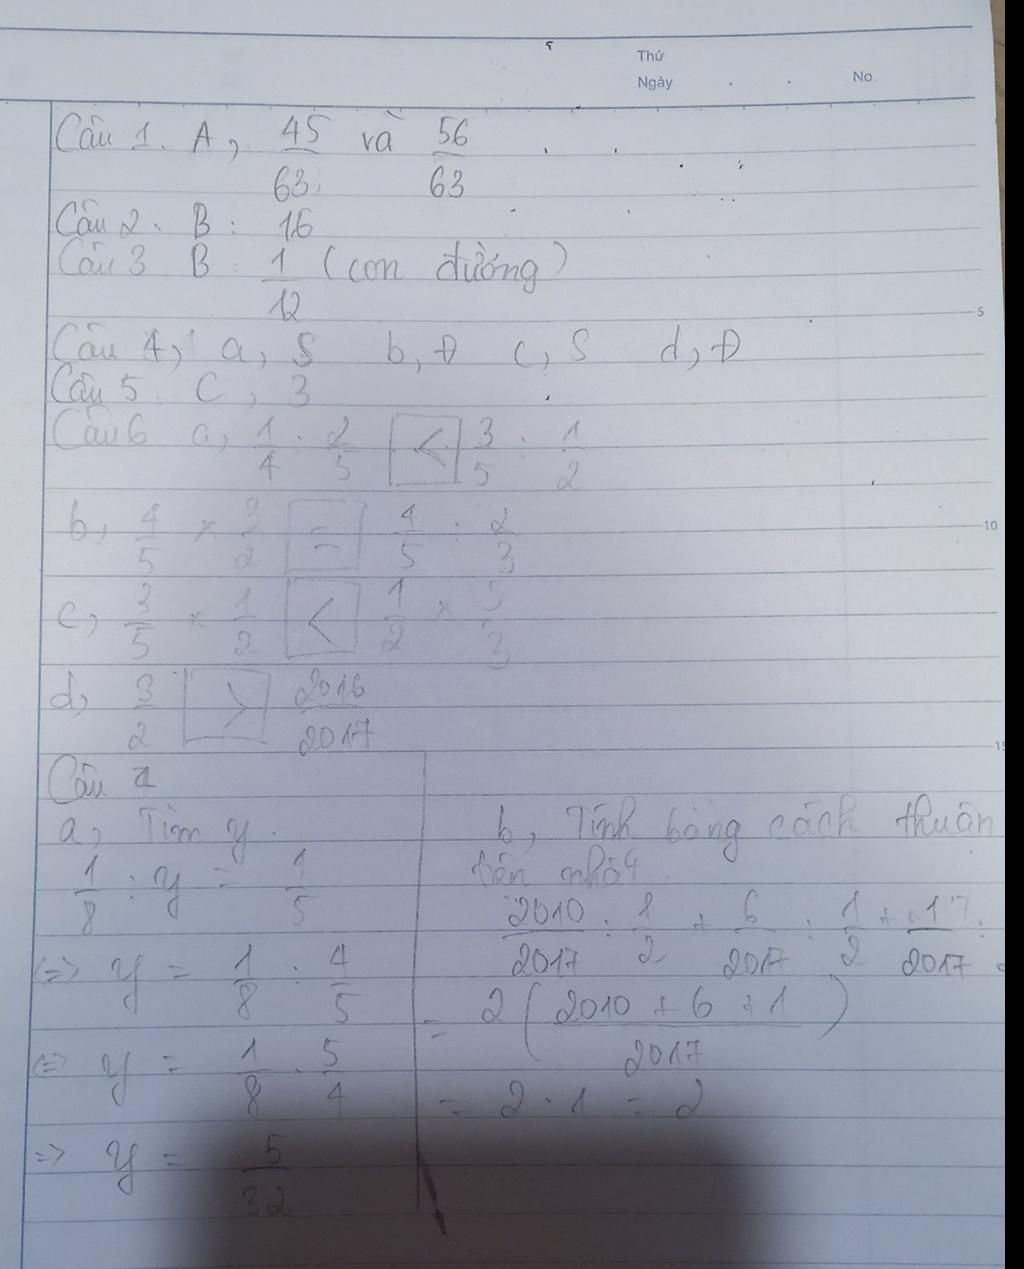 Thứ
Ngày . . No.
Câu 1. A, 45/63 và 56/63
Câu 2. B: 16
Câu 3 B: 1/12 (con đường)
5
Câu 4, a, S b, Đ c, S d, Đ
Câu 5. C, 3
Câu 6 a, 1/4 : 2/5 < 3/5 : 1/2
b, 4/5 × 3/2 = 4/5 : 2/3
10
c, 3/5 × 1/2 < 1/2 ×
d, 3/2 > 2016/2017
Câu
a, Tìm y.
1/8 : y = 4/5
<=> y = 1/8 : 4/5
<=> y = 1/8 . 5/4
=> y = 5/32
b, Tính bằng cách thuận
tiện nhất
2010/2017 : 1/2 + 6/2017 : 1/2 +
= 2 (2010 + 6 + 1 / 2017)
= 2 . 1 = 2